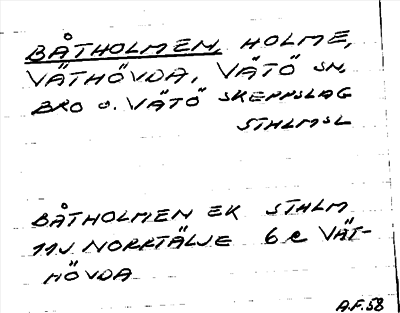 BÅTHOLMEN, HOLME,
VÄTHÖVDA, VÄTÖ SN,
BRO O. VÄTÖ SKEPPSLAG
STHLMSL
BÅTHOLMEN EK STHLM
11J NORRTÄLJE 6 e VÄT-
HÖVDA
A.F. 58